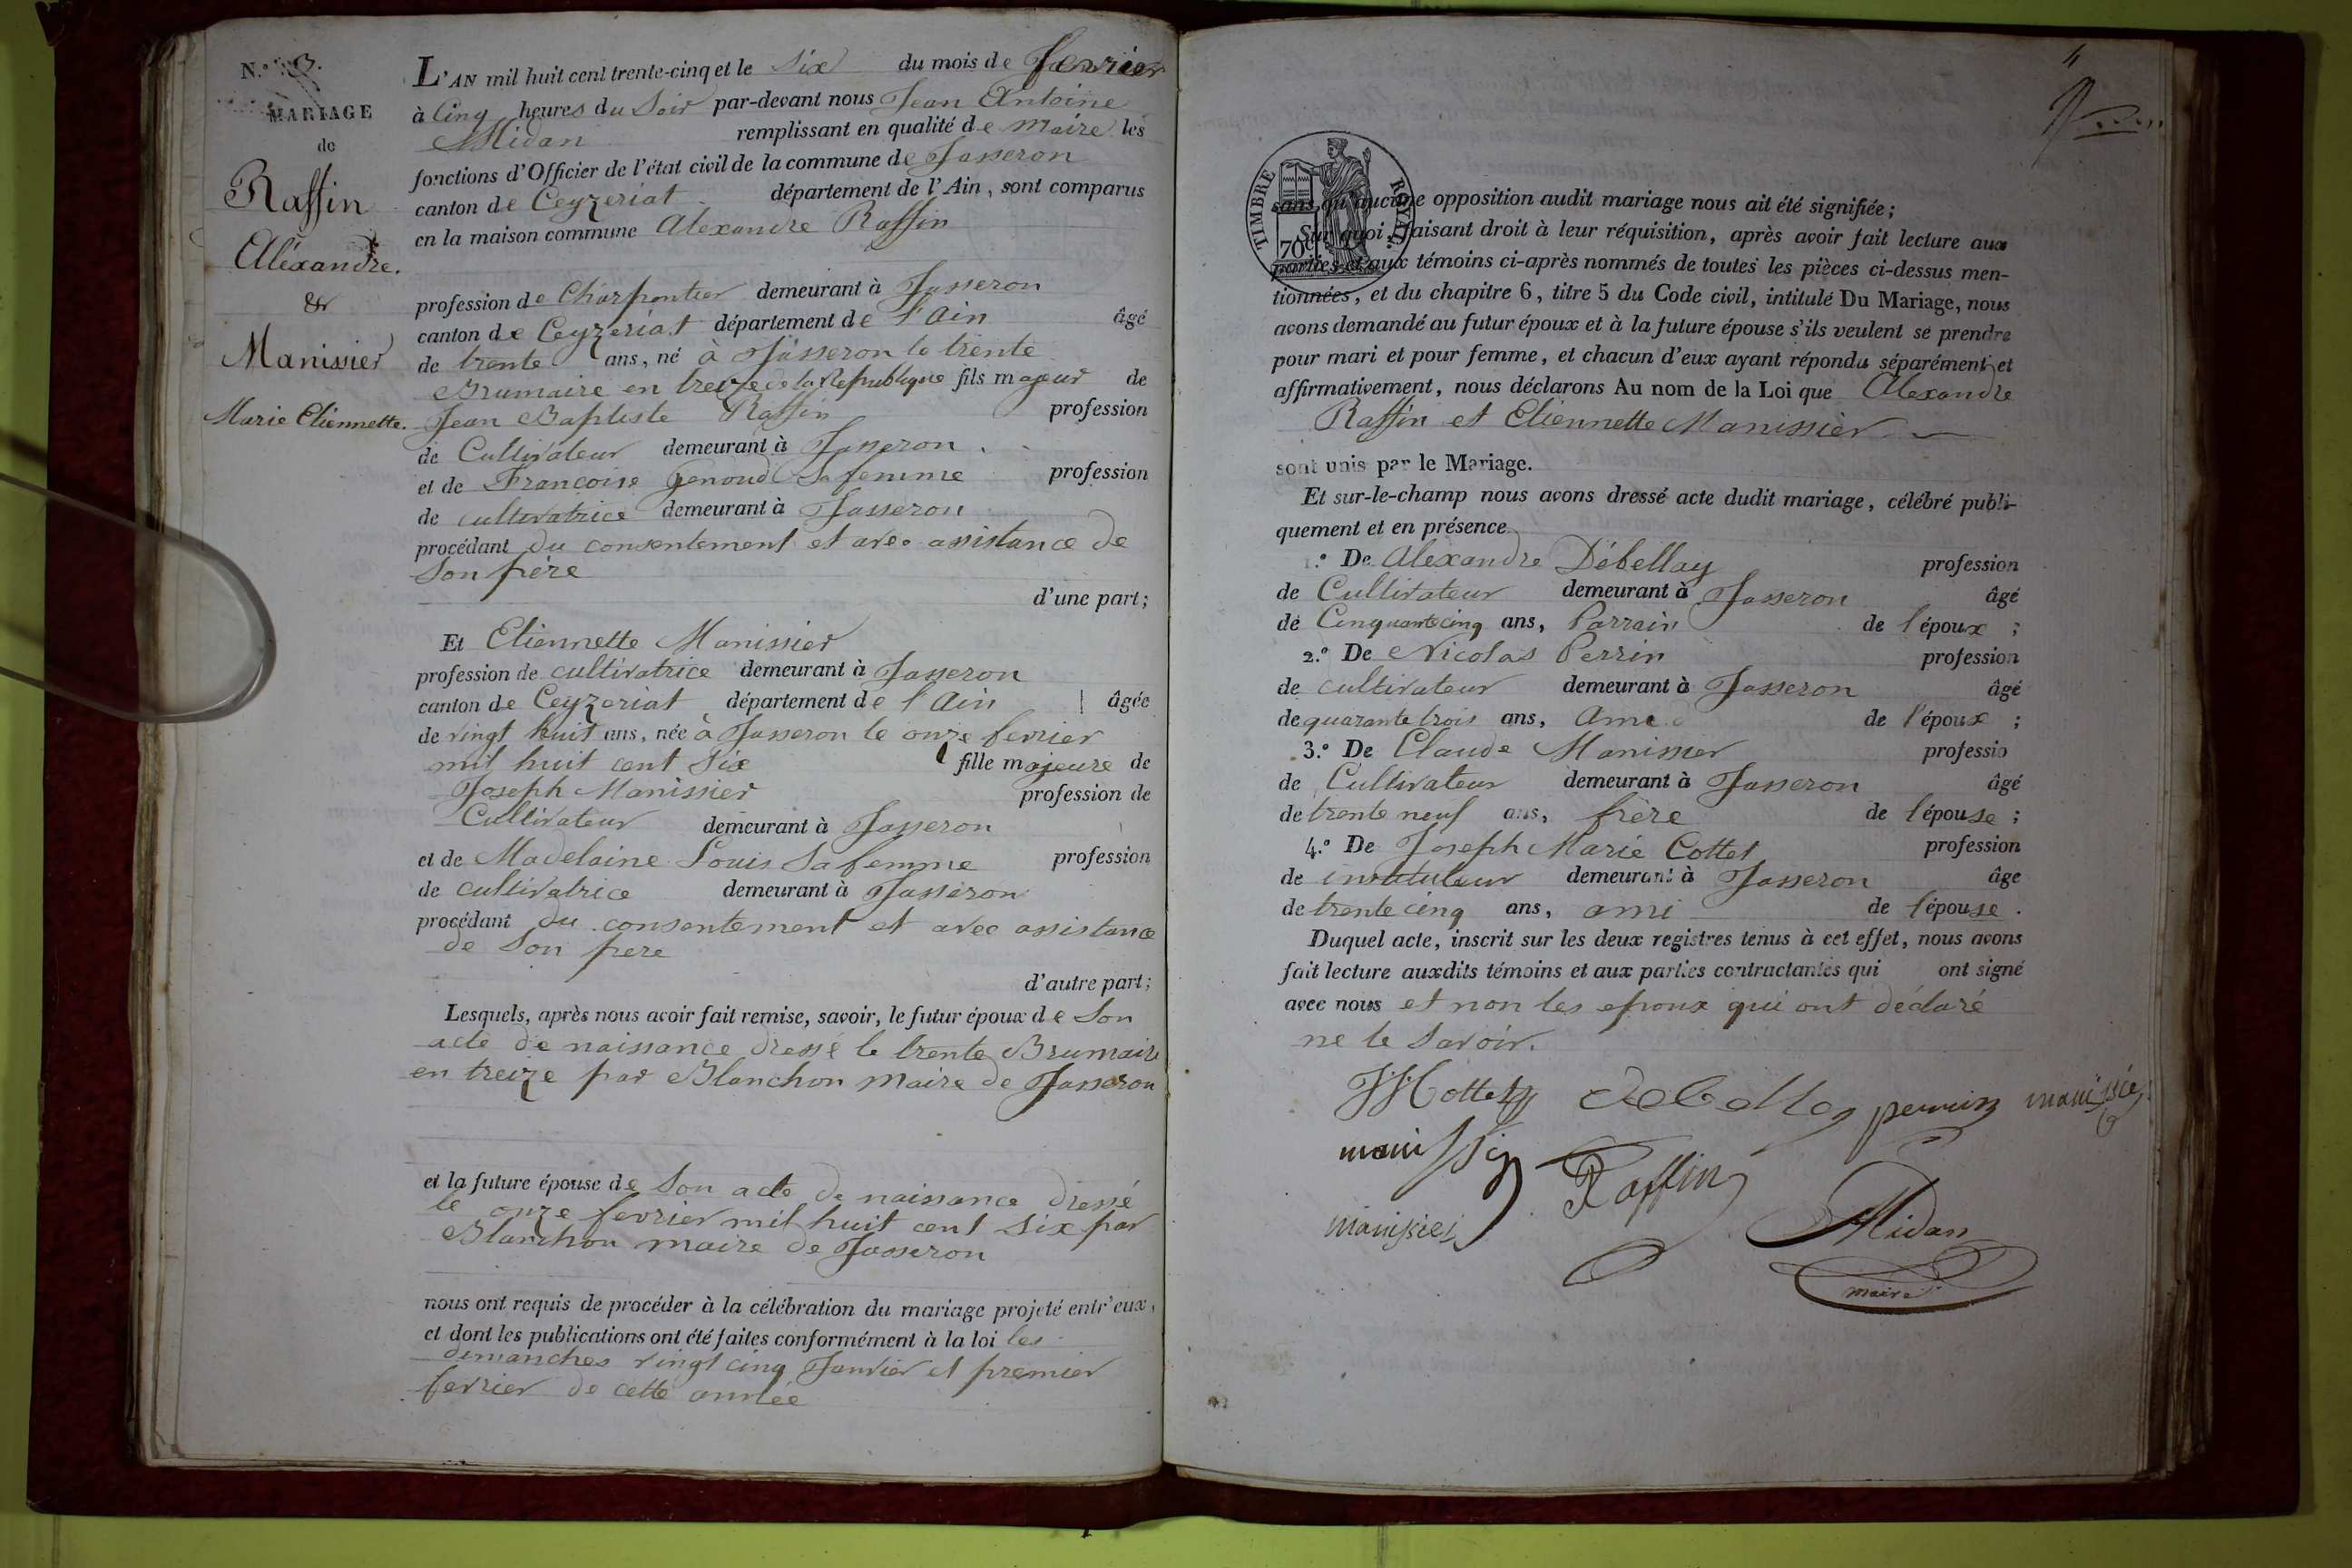 N.º 3.
MARIAGE
de
Raffin
Aléxandre.
&
Manissier
Marie Etiennette.
L'AN mil huit cent trente-cinq et le Six du mois de fevrier
à Cinq heures du Soir par-devant nous Jean Antoine
Midan remplissant en qualité de maire les
fonctions d'Officier de l'état civil de la commune de Jasseron
canton de Ceyzeriat département de l'Ain, sont comparus
en la maison commune Alexandre Raffin
profession de Charpentier demeurant à Jasseron
canton de Ceyzeriat département de l'Ain âgé
de trente ans, né à Jasseron le trente
Brumaire en treize de la Republique fils majeur de
Jean Baptiste Raffin profession
de Cultivateur demeurant à Jasseron.
et de Francoise Genoud Sa femme profession
de cultivatrice demeurant à Jasseron
procédant du consentement et avec assistance de
Son père
d'une part;
Et Etiennette Manissier
profession de cultivatrice demeurant à Jasseron
canton de Ceyzeriat département de l'Ain âgée
de vingt huit ans, née à Jasseron le onze fevrier
mil huit cent Six fille majeure de
Joseph Manissier profession de
Cultivateur demeurant à Jasseron
et de Madelaine Louis Sa femme profession
de cultivatrice demeurant à Jasseron
procédant du consentement et avec assistance
de Son pere
d'autre part;
Lesquels, après nous avoir fait remise, savoir, le futur époux de Son
acte de naissance dressé le trente Brumaire
en treize par Blanchon maire de Jasseron
et la future épouse de Son acte de naissance dressé
le onze fevrier mil huit cent Six par
Blanchon maire de Jasseron
nous ont requis de procéder à la célébration du mariage projeté entr'eux,
et dont les publications ont été faites conformément à la loi les
dimanches vingt cinq Janvier et premier
fevrier de cette année
4
TIMBRE ROYAL
70c
sans qu'aucune opposition audit mariage nous ait été signifiée;
Sur quoi, faisant droit à leur réquisition, après avoir fait lecture aux
parties et aux témoins ci-après nommés de toutes les pièces ci-dessus men-
tionnées, et du chapitre 6, titre 5 du Code civil, intitulé Du Mariage, nous
avons demandé au futur époux et à la future épouse s'ils veulent se prendre
pour mari et pour femme, et chacun d'eux ayant répondu séparément et
affirmativement, nous déclarons Au nom de la Loi que Alexandre
Raffin et Etiennette Manissier
sont unis par le Mariage.
Et sur-le-champ nous avons dressé acte dudit mariage, célébré publi-
quement et en présence
1.º De Aléxandre Débellay profession
de Cultivateur demeurant à Jasseron âgé
de Cinquante cinq ans, Parrain de l'époux ;
2.º De Nicolas Perrin profession
de cultivateur demeurant à Jasseron âgé
de quarante trois ans, Ami de l'époux ;
3.º De Claude Manissier professio
de Cultivateur demeurant à Jasseron âgé
de trente neuf ans, frère de l'épouse ;
4.º De Joseph Marie Cottet profession
de instituteur demeurant à Jasseron âge
de trente cinq ans, ami de l'épouse .
Duquel acte, inscrit sur les deux registres tenus à cet effet, nous avons
fait lecture auxdits témoins et aux parties contractantes qui ont signé
avec nous et non les epoux qui ont déclaré
ne le Savoir.
JMCottet Debellay perrin manissier
manissier Raffin
manissier Midan
maire